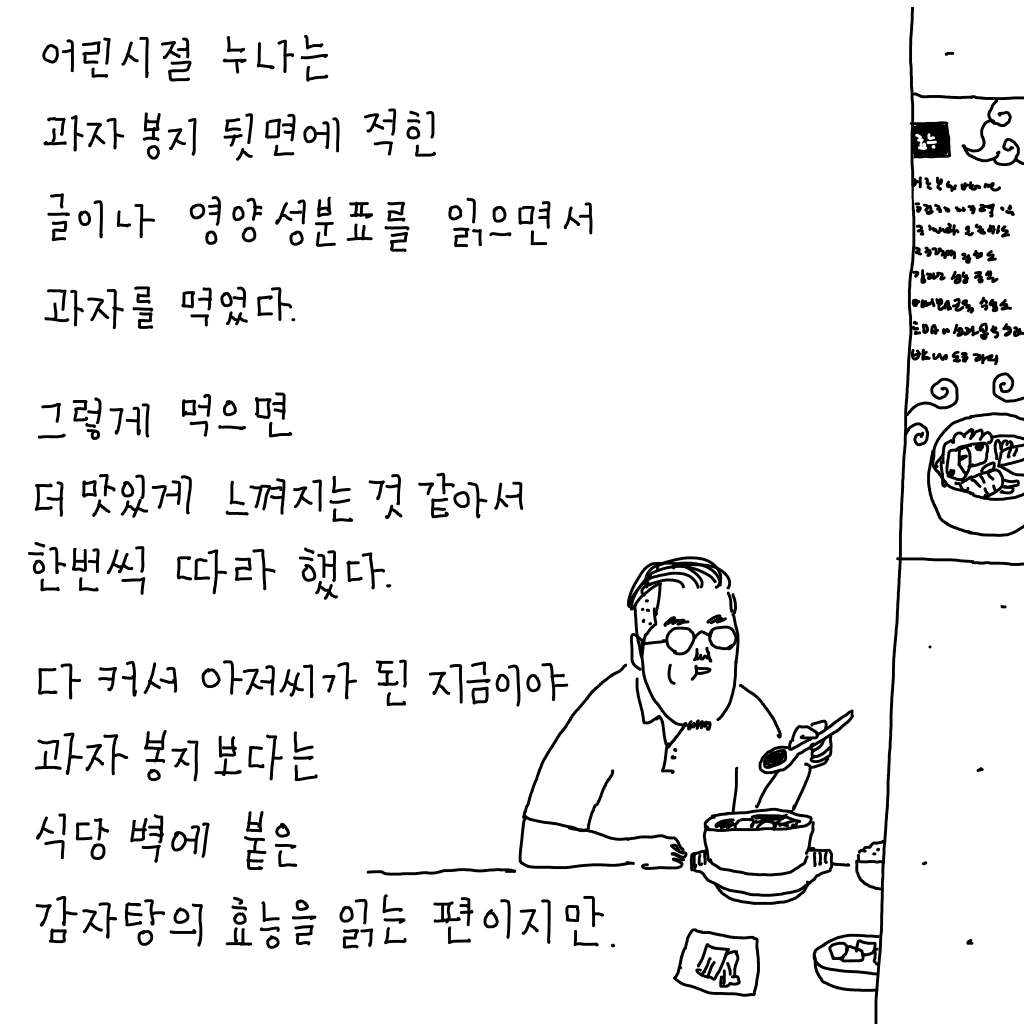 어린시절 누나는
과자 봉지 뒷면에 적힌
글이나 영양성분표를 읽으면서
과자를 먹었다.
그렇게 먹으면
더 맛있게 느껴지는 것 같아서
한번씩 따라 했다.
다 커서 아저씨가 된 지금이야
과자 봉지 보다는
식당 벽에 붙은
감자탕의 효능을 읽는 편이지만.
효능